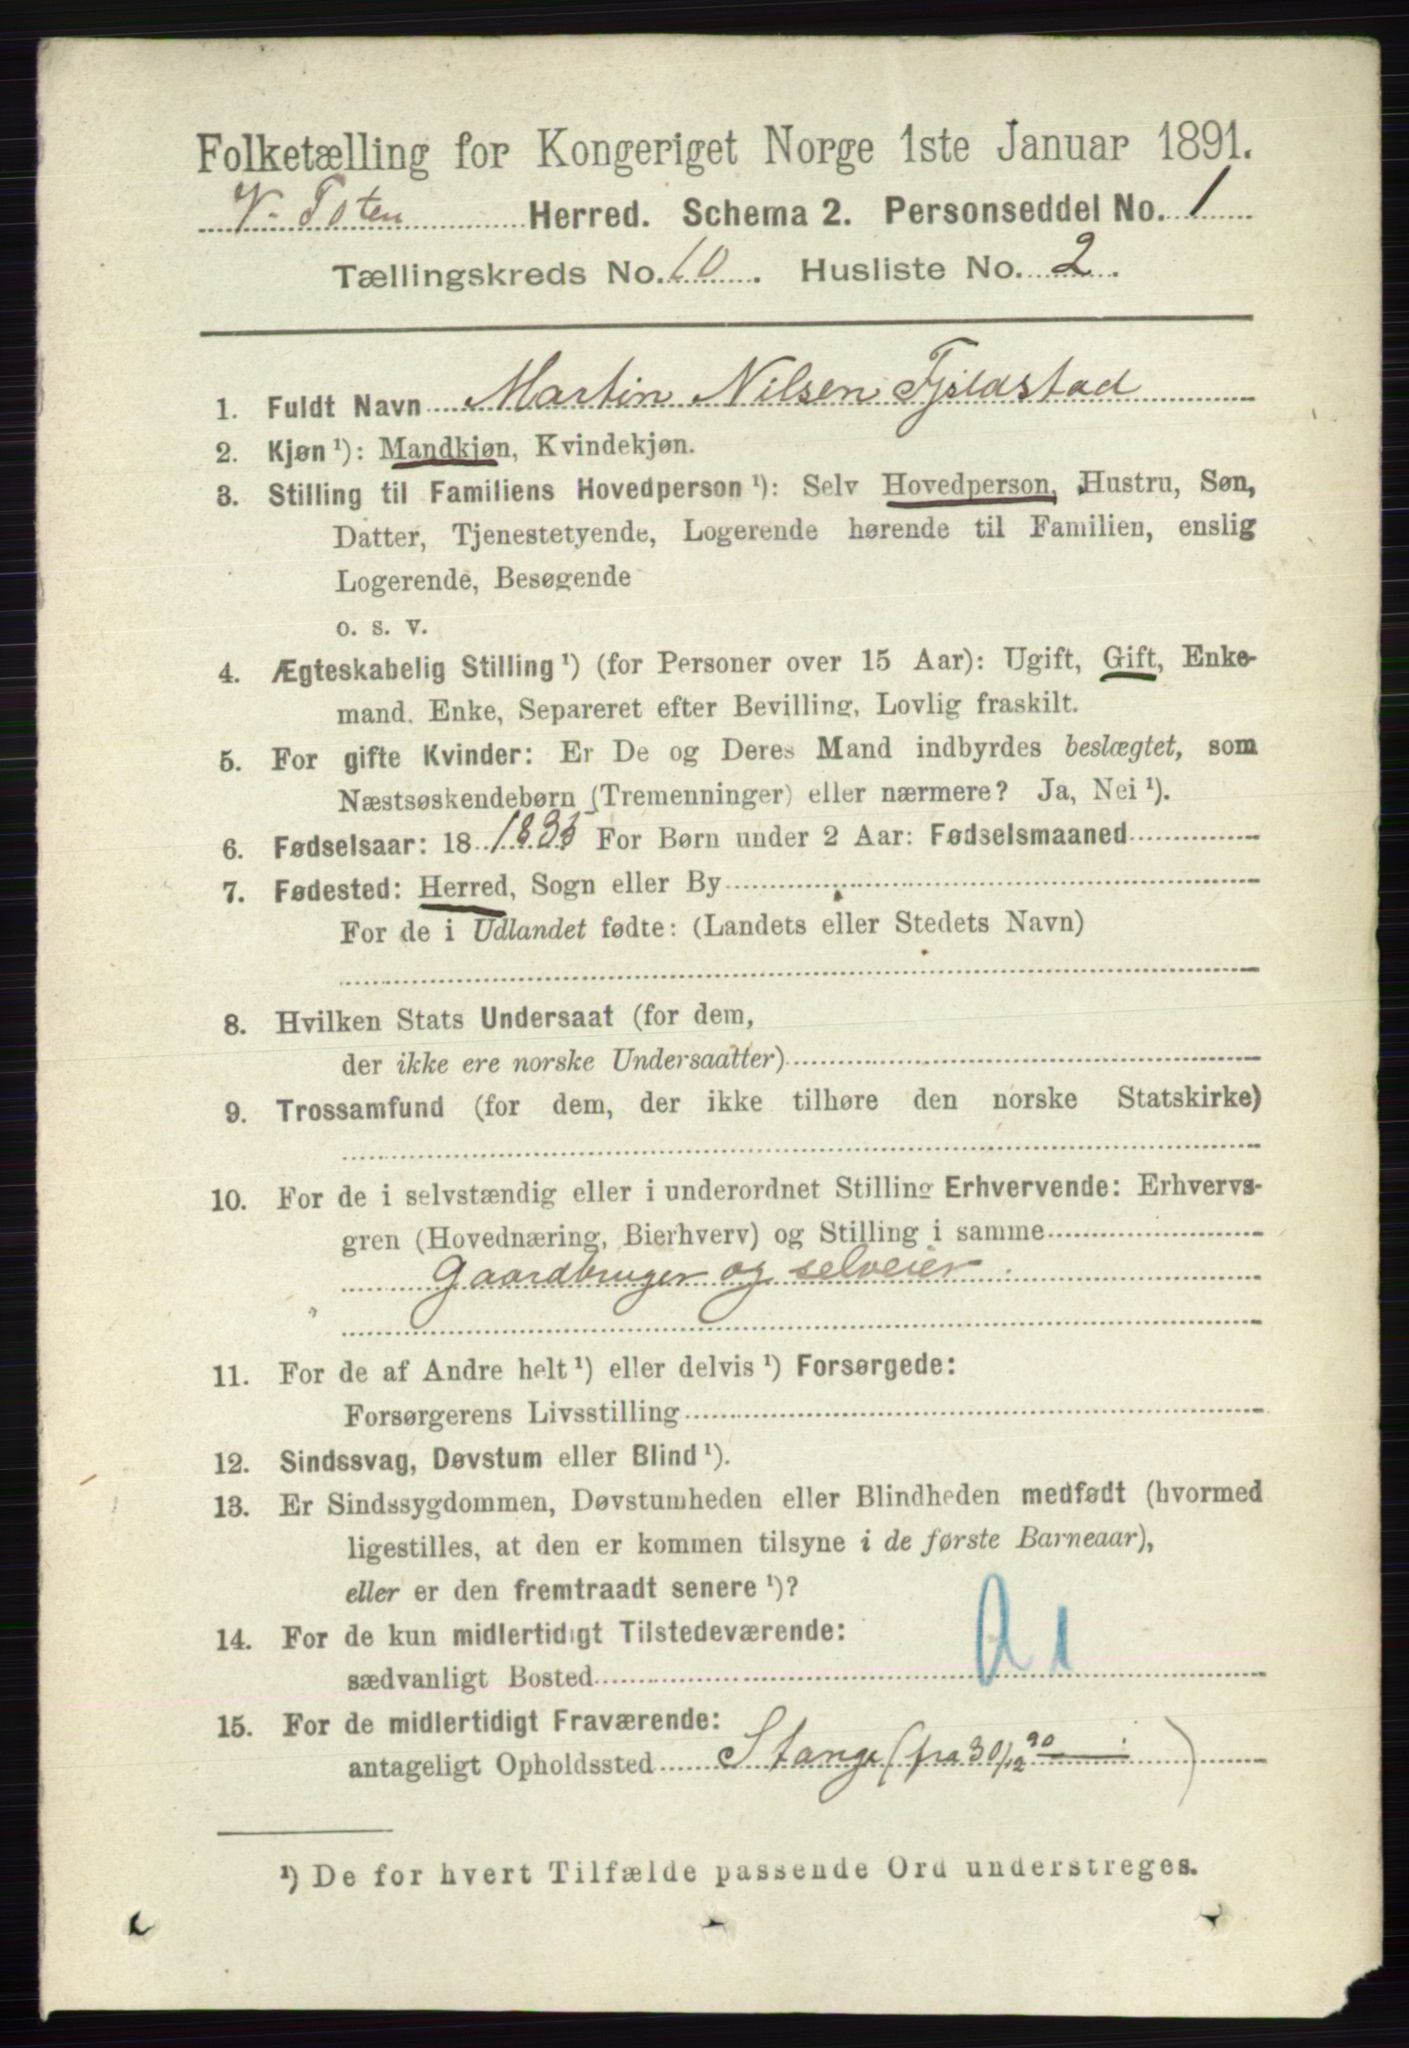 Folketælling for Kongeriget Norge 1ste Januar 1891.
V. Toten Herred. Schema 2. Personseddel No. 1
Tællingskreds No. 10. Husliste No. 2.
1. Fuldt Navn Martin Nilsen Fjeldstad
2. Kjøn ¹): Mandkjøn, Kvindekjøn.
3. Stilling til Familiens Hovedperson ¹): Selv Hovedperson, Hustru, Søn,
Datter, Tjenestetyende, Logerende hørende til Familien, enslig
Logerende, Besøgende
o. s. v.
4. Ægteskabelig Stilling ¹) (for Personer over 15 Aar): Ugift, Gift, Enke-
mand. Enke, Separeret efter Bevilling, Lovlig fraskilt.
5. For gifte Kvinder: Er De og Deres Mand indbyrdes beslægtet, som
Næstsøskendebørn (Tremenninger) eller nærmere? Ja, Nei ¹).
6. Fødselsaar: 18 For Børn under 2 Aar: Fødselsmaaned
7. Fødested: Herred, Sogn eller By
For de i Udlandet fødte: (Landets eller Stedets Navn)
8. Hvilken Stats Undersaat (for dem,
der ikke ere norske Undersaatter)
9. Trossamfund (for dem, der ikke tilhøre den norske Statskirke)
10. For de i selvstændig eller i underordnet Stilling Erhvervende: Erhvervs-
gren (Hovednæring, Bierhverv) og Stilling i samme
Gaardbruger og selveier
11. For de af Andre helt ¹) eller delvis ¹) Forsørgede:
Forsørgerens Livsstilling
12. Sindssvag, Døvstum eller Blind ¹).
13. Er Sindssygdommen, Døvstumheden eller Blindheden medfødt (hvormed
ligestilles, at den er kommen tilsyne i de første Barneaar),
eller er den fremtraadt senere ¹)?
14. For de kun midlertidigt Tilstedeværende:
sædvanligt Bosted
15. For de midlertidigt Fraværende:
antageligt Opholdssted Stange (fra 30/12 90 — )
¹) De for hvert Tilfælde passende Ord understreges.